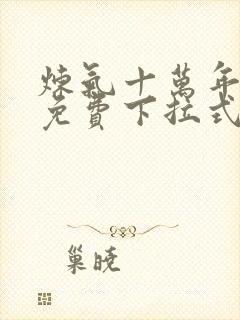 煉氣十萬年
免費下拉式
巢曉